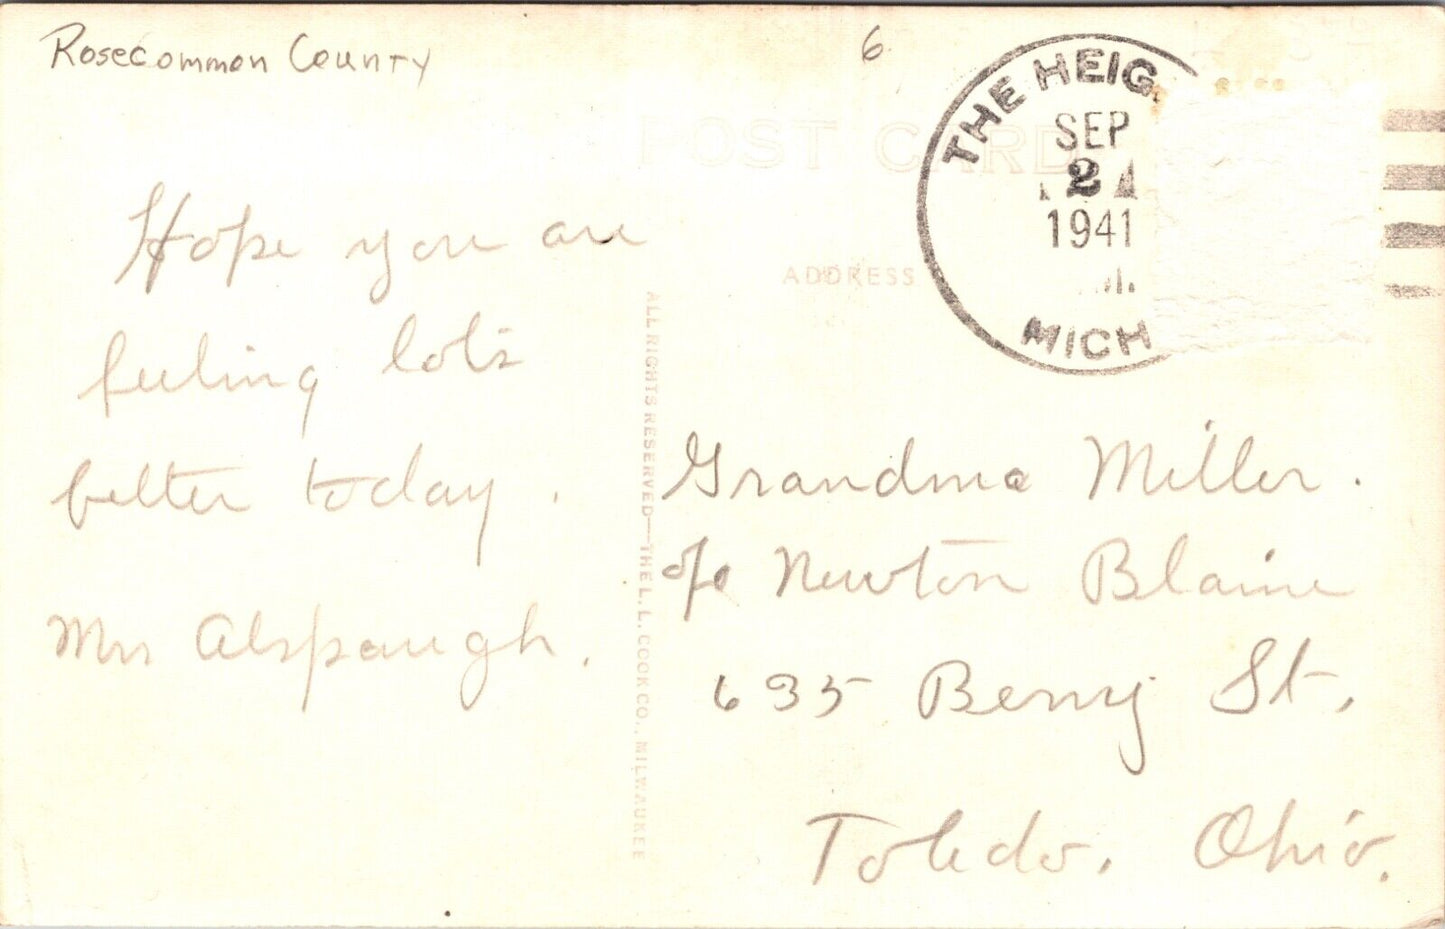 Rosecommon County
6
POST CARD
THE HEIG
SEP
2 A
1941
MICH
ADDRESS
Hope you are
feeling lots
better today.
Mrs Alspaugh.
ALL RIGHTS RESERVED—THE L. L. COOK CO., MILWAUKEE
Grandma Miller.
c/o Newton Blaine
635 Berry St.
Toledo, Ohio.